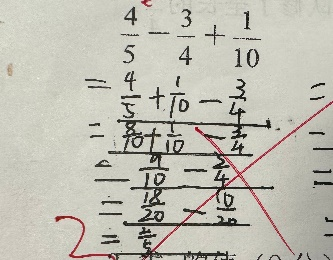 4/5 − 3/4 + 1/10
= 4/5 + 1/10 − 3/4
= 8/10 + 1/10 − 3/4
= 9/10 − 3/4
= 18/20 − 10/20
=
2